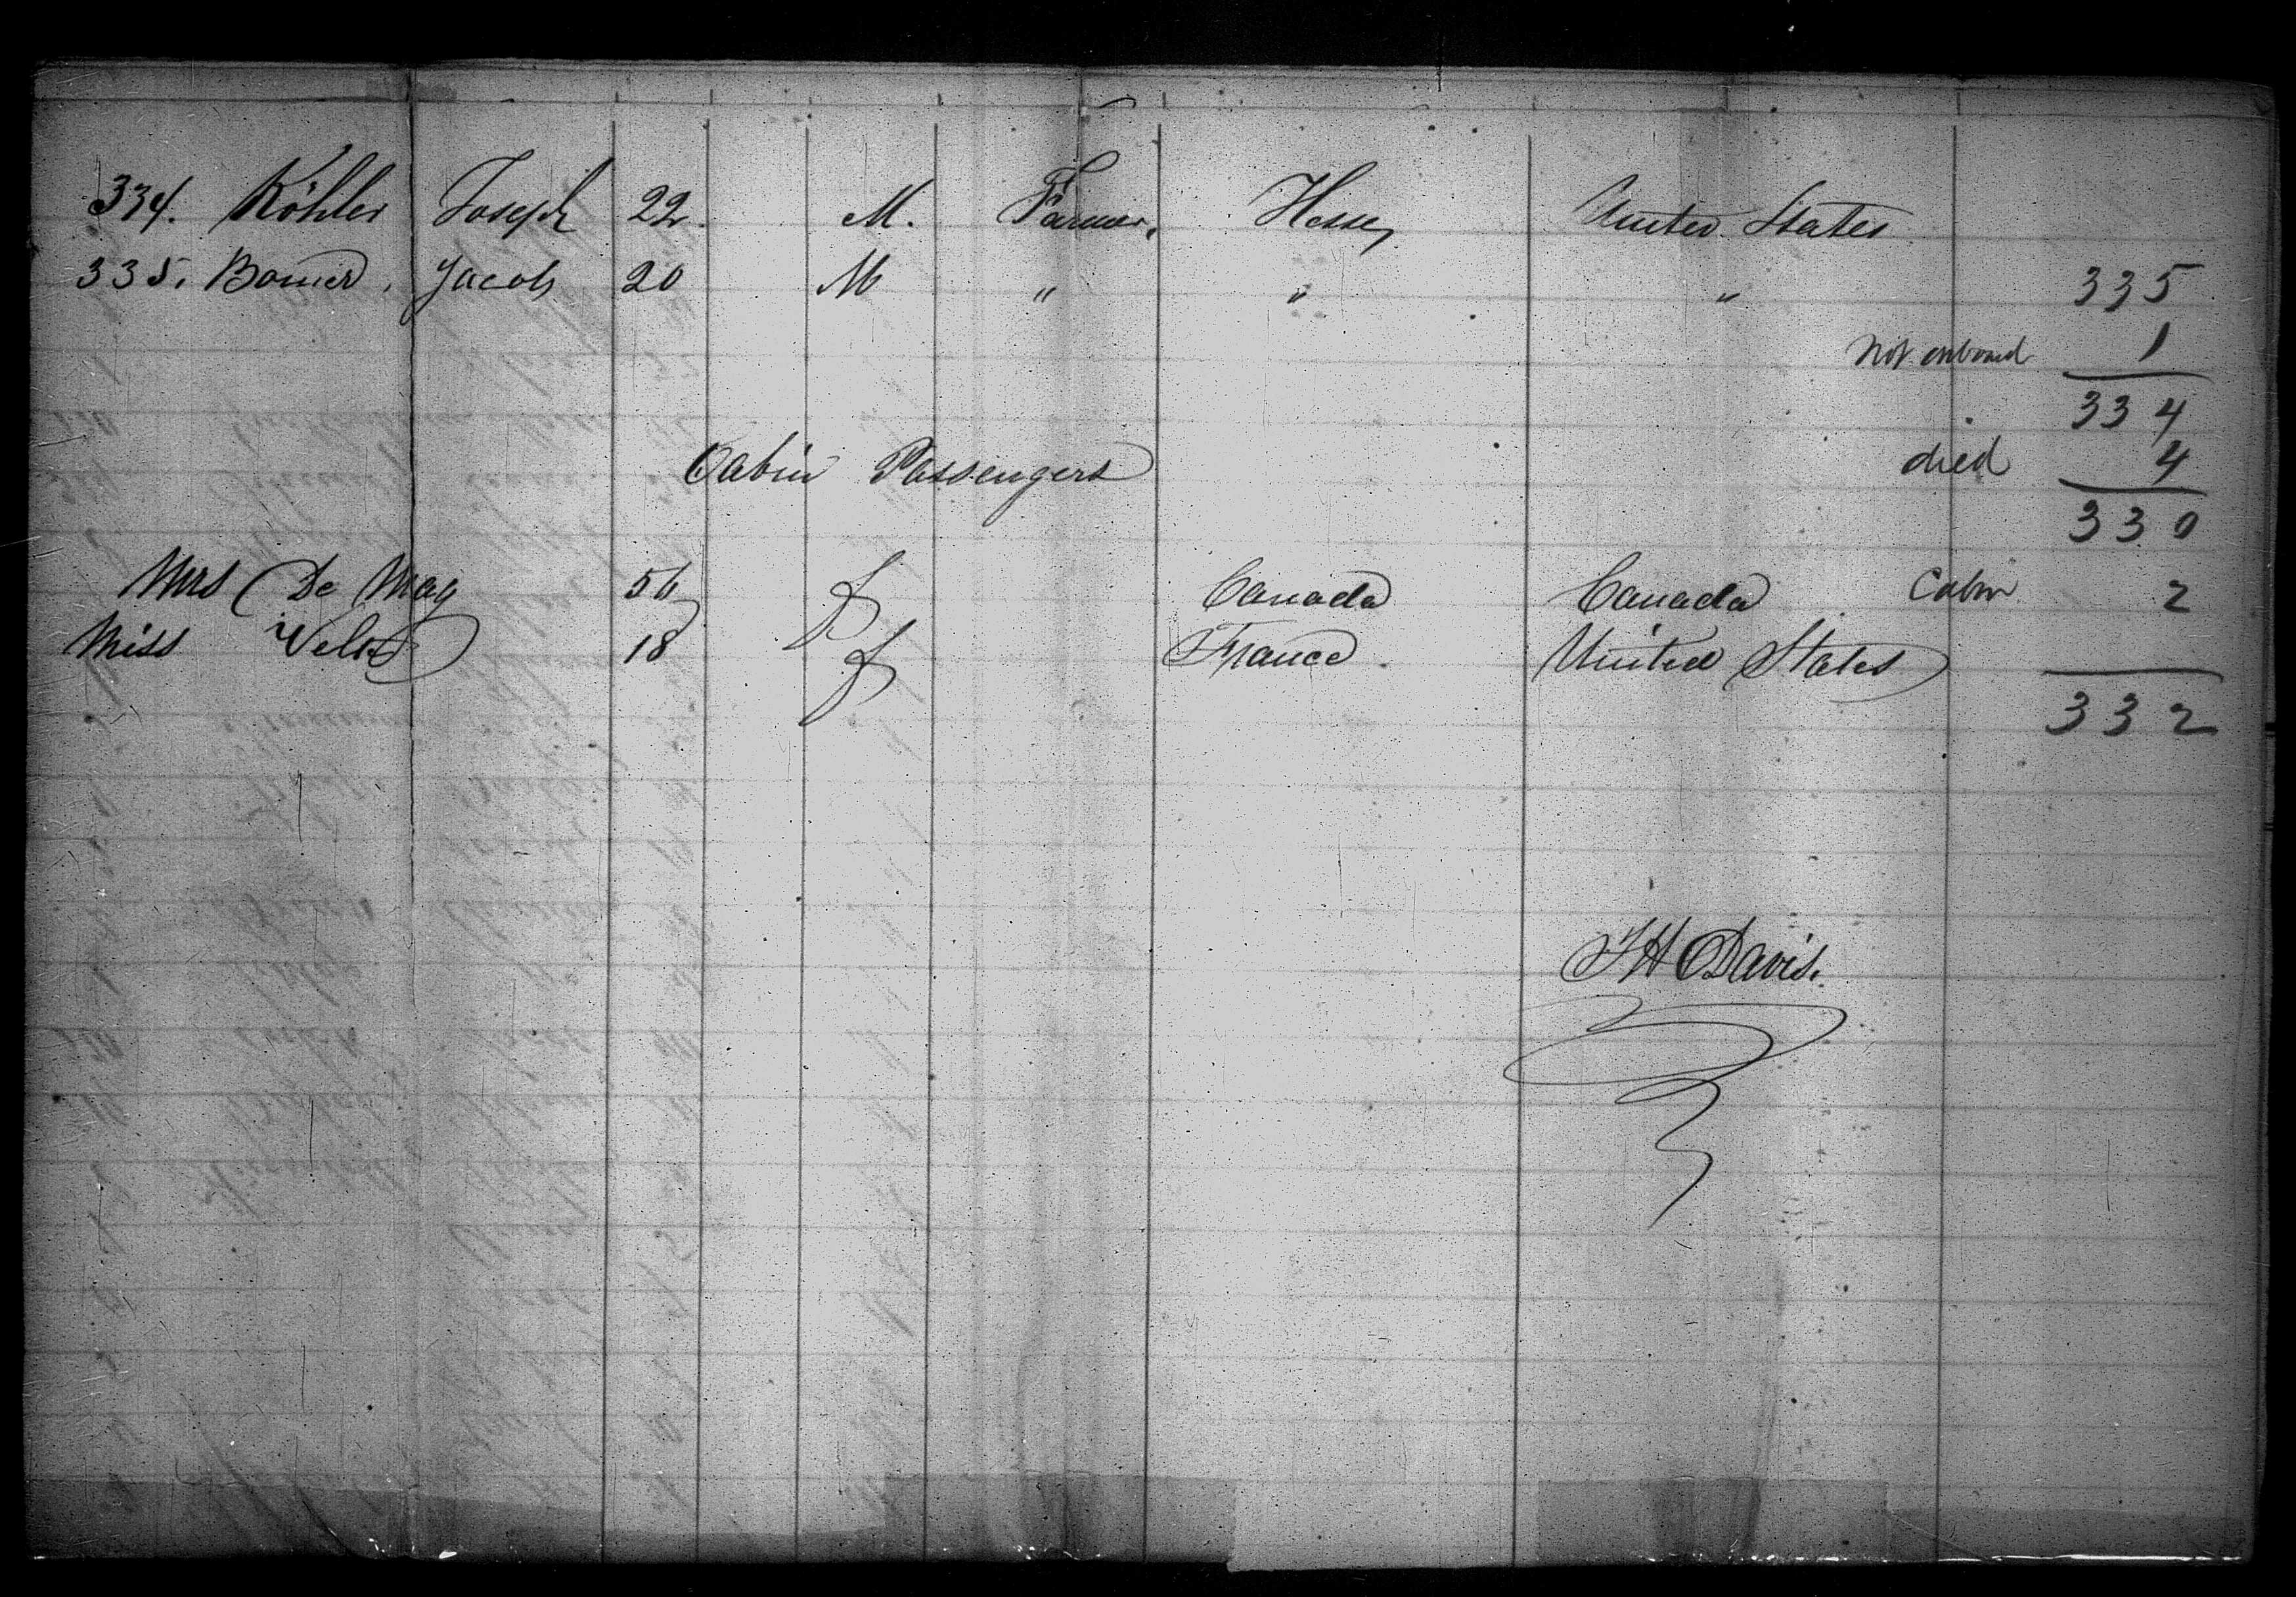 334. Köhler Joseph 22. M. Farmer, Hesse, United States
335. Bomer, Jacob 20 M " " " 335
Not onboard 1
334
Cabin Passengers died 4
330
Mrs De May 56 F Canada Canada Cabin 2
Miss Velt 18 F France United States
332
JH Davis.